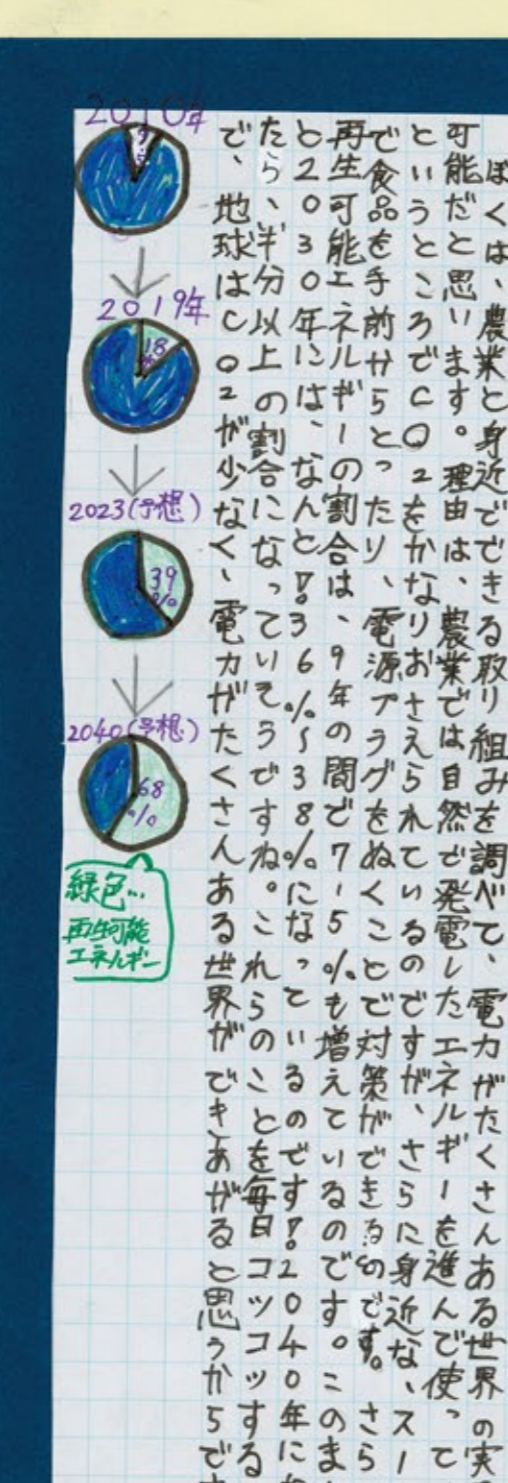 ぼくは、農業と身近でできる取り組みを調べて、電力がたくさんある世界の実
可能だと思います。理由は、農業では自然で発電したエネルギーを進んで使って
というところでCO2をかなりおさえられているのですが、さらに身近な、スー
で食品を手前からとったり、電源プラグをぬくことで対策ができるのです。さら
再生可能エネルギーの割合は、9年の間で7.5%も増えているのです。このまま
と2030年には、なんと!36%~38%になっているのです!2040年に
たら、半分以上の割合になっていそうですね。これらのことを毎日コツコツする
で、地球はCO2が少なく、電力がたくさんある世界ができあがると思うからで
2010年
9.5
2019年
18%
2023(予想)
39%
2040(予想)
68%
緑色…
再生可能
エネルギー